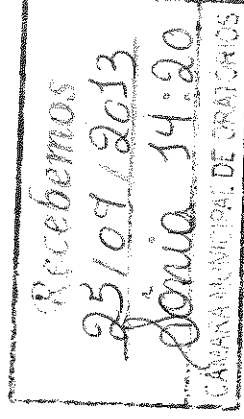 Recebemos
25/07/2013
Sonia 14:20
CÂMARA MUNICIPAL DE ORATÓRIOS